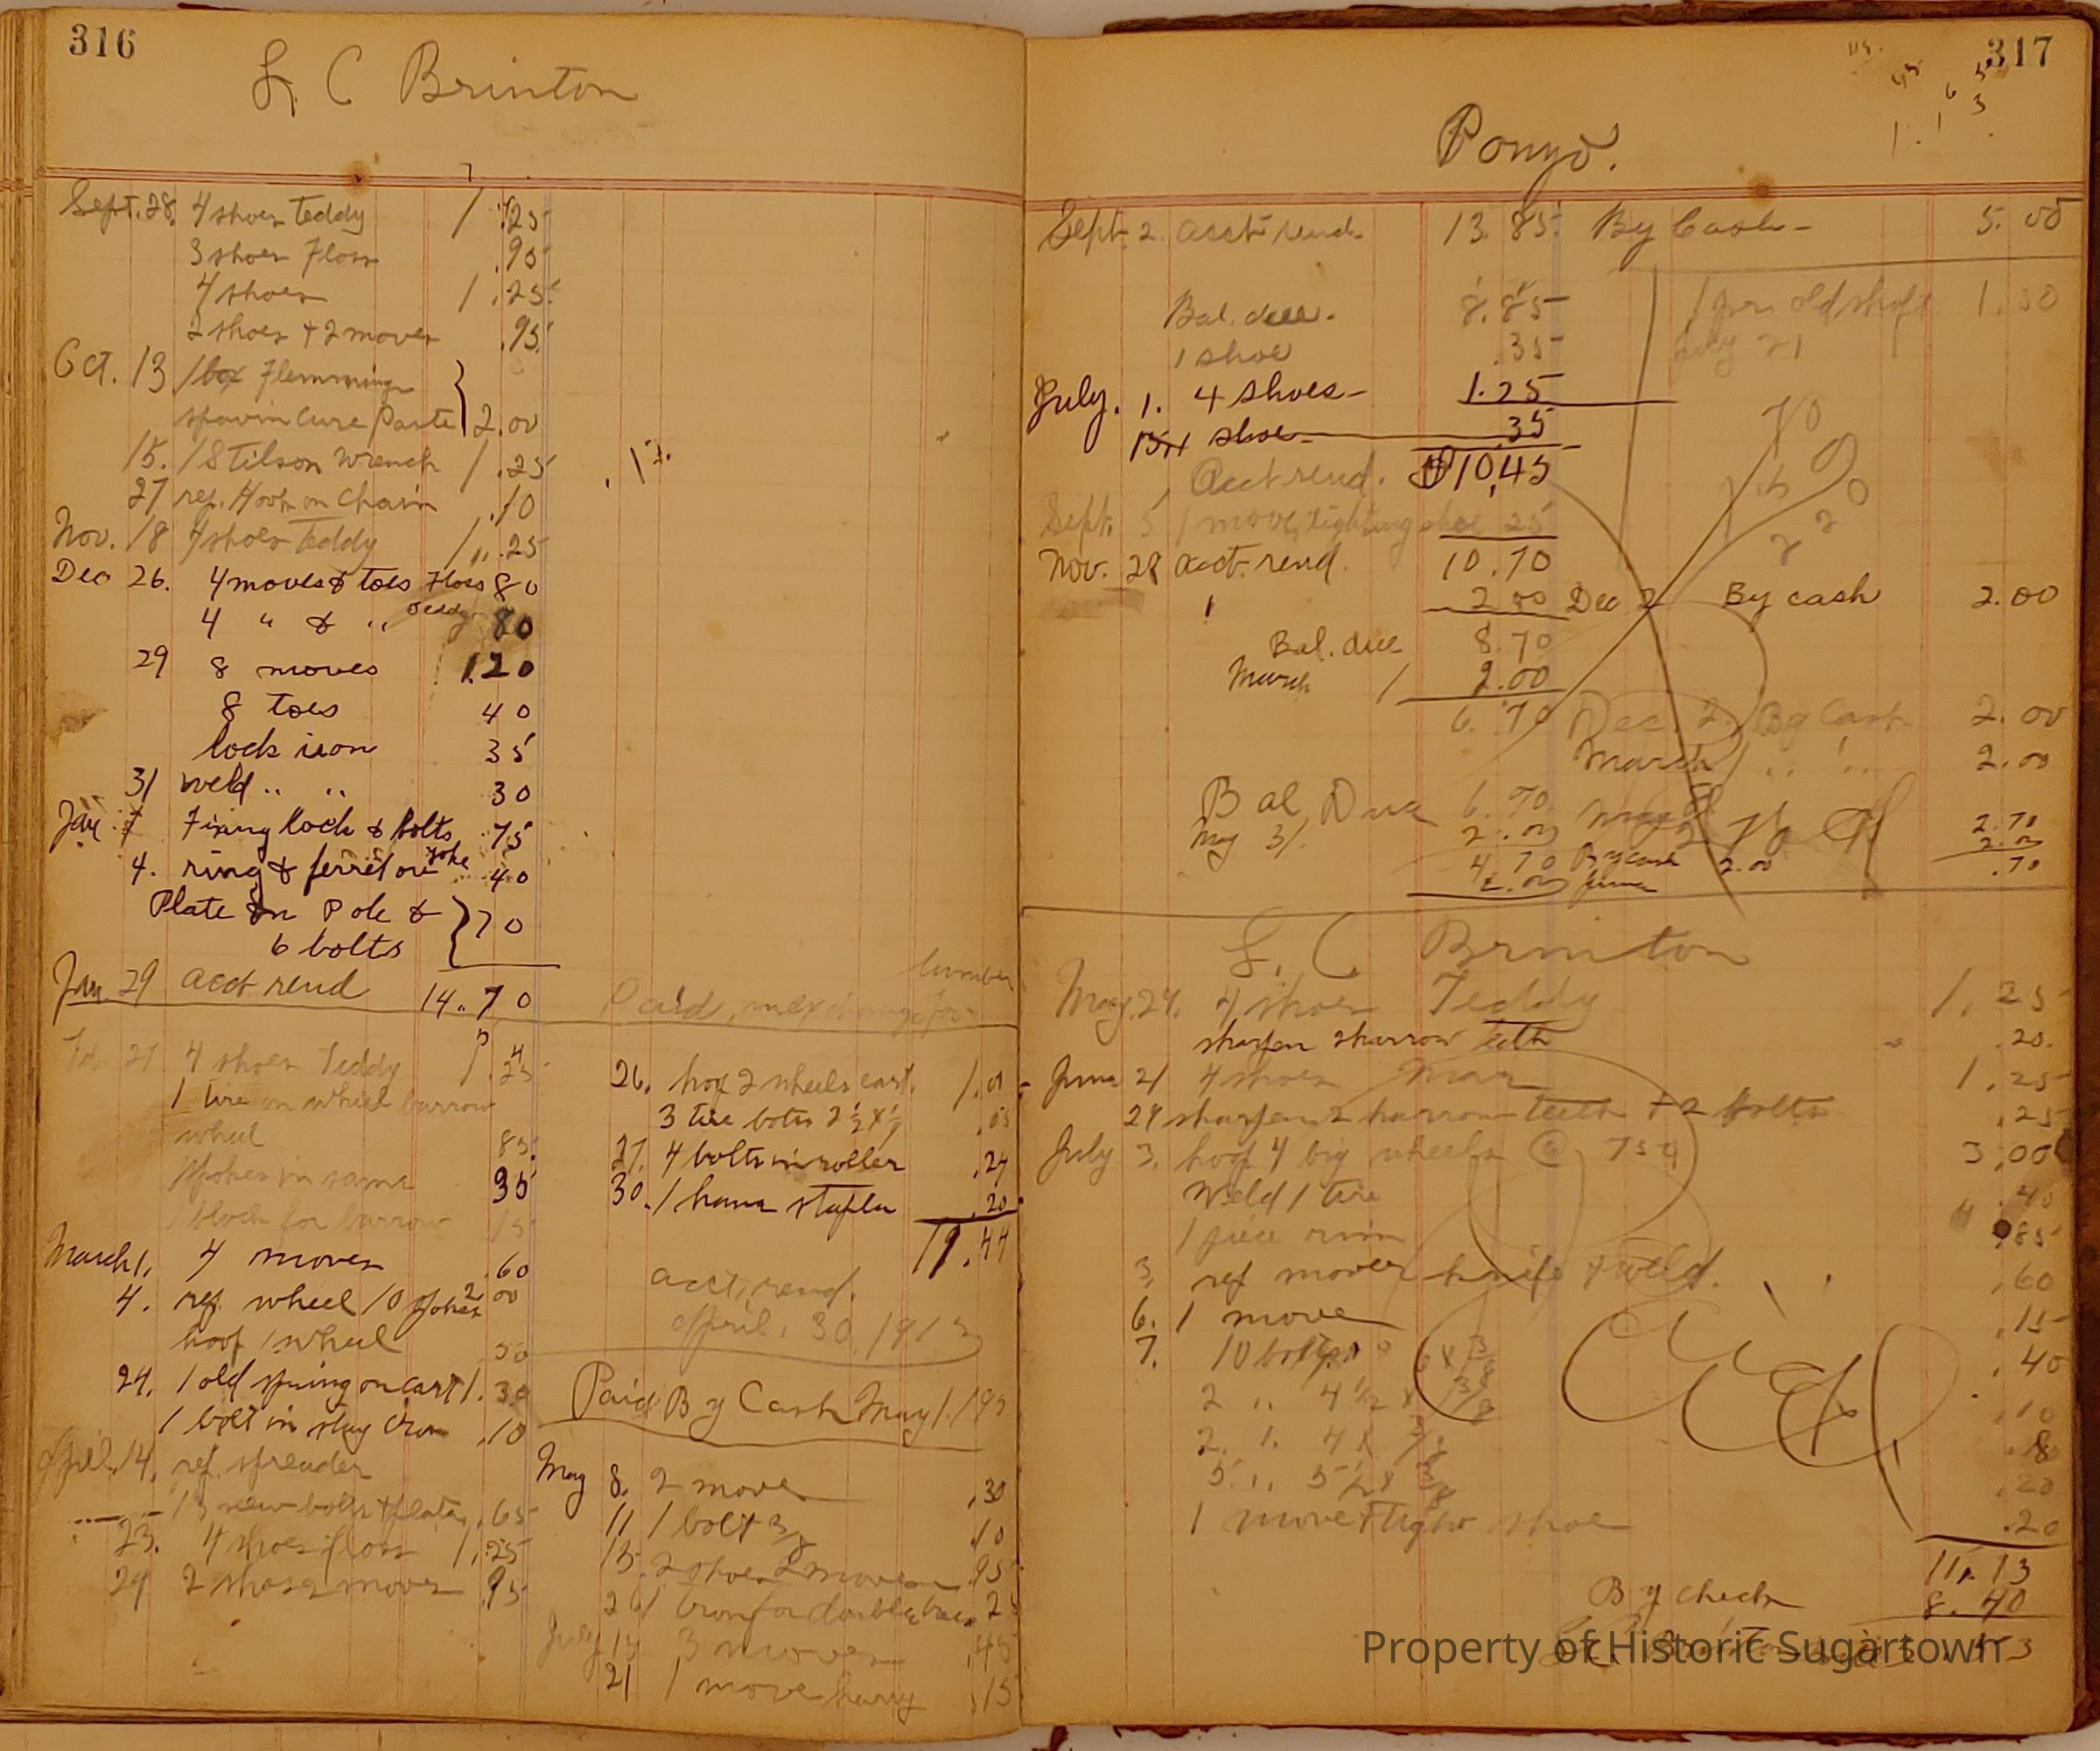 316
L. C Brinton
Sept. 28. 4 shoes Teddy 1.25
3 shoes Floss .95
4 shoes 1.25
2 shoes + 2 moves .95
Oct. 13 1 box Flemmings
Spavin Cure Paste 2.00
15. 1 Stilson Wrench 1.25
27 rep. Hook on Chain .10
Nov. 18 4 shoes Teddy 1.25
Dec 26. 4 moves & toes Floss 80
4 " & " Teddy 80
29 8 moves 1.20
8 toes 40
lock iron 35
31 weld " " 30
Jan 1 Fixing lock & bolts 75
4. ring & ferrel on yoke 40
Plate on Pole &
6 bolts 70
Jan. 29 acct rend 14.70
Paid, in exchange for lumber
Feb. 21 4 shoes Teddy 1.25
1 tire on wheel barrow
wheel 85
spokes in same 35
1 block for barrow 15
March 1. 4 moves .60
4. rep. wheel 10 spokes 2.00
hoof 1 wheel 50
24. 1 old spring on cart 1.30
1 bolt in stay iron .10
April. 14. rep. spreader
13 new bolts + plates .65
23. 4 shoes floss 1.25
29 2 shoes 2 moves .95
26. hoof 2 wheels cart. 1.00
3 tire bolts 2 1/2 x 1/4 .05
27. 4 bolts in roller .24
30. 1 hame staple .20
acct, rend.
April. 30. 1913
Paid By Cash May 1. 193
May 8. 2 moves .30
11 1 bolt 3/8 10
15. 2 shoes 2 moves .95
1 iron for double tree
July 18 3 moves .45
21 1 move harry .15
317
Sept. 2. acct rend. 13.85 By Cash - 5.00
Bal. due. 8.85 1 pr. old shafts 1.50
1 shoe .35 July 21
July. 1. 4 shoes - 1.25
15 1 shoe .35
Acct rend. $10.45
Sept. 5 1 move, tighting shoe 25
Nov. 28 acct. rend. 10.70
2.00 Dec 2 By cash 2.00
Bal. due 8.70
March 1 2.00
6.70 Dec. 2. By Cash 2.00
March 1 " " 2.00
Bal Due 6.70
May 31. 2.00 2.70
4.70 By cash 2.00 2.00
2.00 .70
L. C Brinton
May. 24. 4 shoes Teddy 1.25
sharpen harrow teeth .20.
June 21 4 shoes 1.25
24 sharpen 2 harrow teeth + 2 bolts .25
July 3. hoof 4 big wheels @ 75¢ 3.00
Weld 1 tire .40
1 piece rim .85
3. rep mover knife + weld. .60
6. 1 move .15
7. 10 bolts 6 x 3/8 .40
2 " 4 1/2 x 3/8 .10
2. " 4 x 3/8 .8
5. " 5 1/2 x 3/8 .20
1 move + tight shoe .20
11.13
By check 8.40
Property of Historic Sugartown